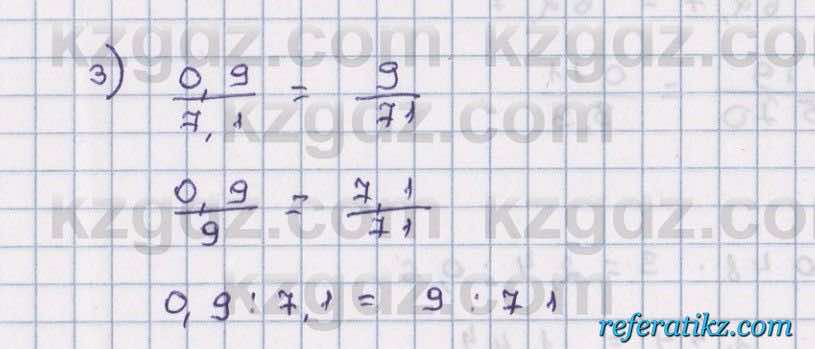 kzgdz.com kzgdz.com
3) 0,9/7,1 = 9/71
kzgdz.com kzgdz.com
0,9/9 = 7,1/71
kzgdz.com kzgdz.com
0,9 : 7,1 = 9 : 71
referatikz.com